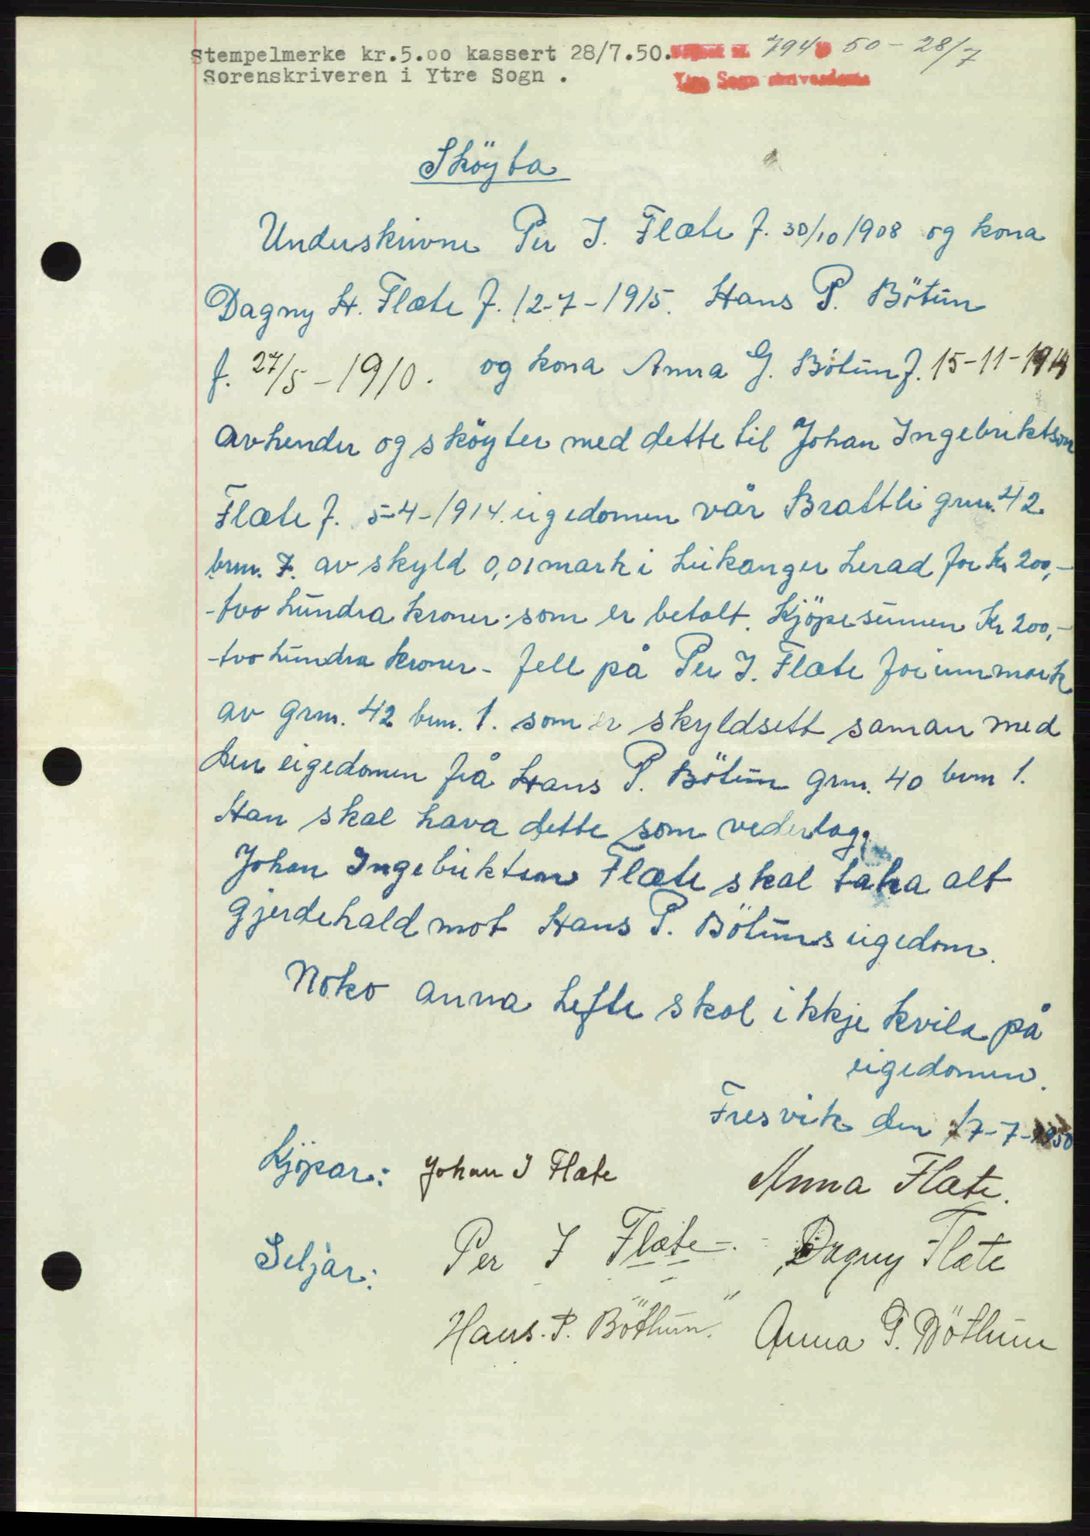 Stempelmerke kr.5.oo kassert 28/7.50. 794 50 - 28/7
Sorenskriveren i Ytre Sogn . Ytre Sogn
Sköyta
Underskrivne Per I. Flæte f. 30/10 1908 og kona
Dagny H. Flæte f. 12-7-1915. Hans P. Bötun
f. 27/5 - 1910. og kona Anna G. Bötun f. 15-11-1914
avhender og sköyter med dette til Johan Ingebriktson
Flæte f. 5-4-1914. eigedomen vår Brattli grnr. 42
brnr. 7. av skyld 0,01 mark i Leikanger herad for kr 200,-
-tvo hundra kroner. som er betalt. Kjöpesumen Kr 200,-
-tvo hundra kroner- fell på Per I. Flæte for innmark
av grnr. 42 bnr. 1. som er skyldsett saman med
den eigedomen frå Hans P. Bötun grnr. 40 bnr 1.
Han skal hava dette som vederlag.
Johan Ingebriktson Flæte skal taka alt
gjerdehald mot Hans P. Bötuns eigedom.
Noko anna hefte skal ikkje kvila på
eigedomen.
Fresvik den 17-7-1950
Kjöpar: Johan I Flæte Anna Flæte.
Seljar: Per I Flæte-. Dagny Flæte
Hans. P. Böthun. Anna G. Böthun